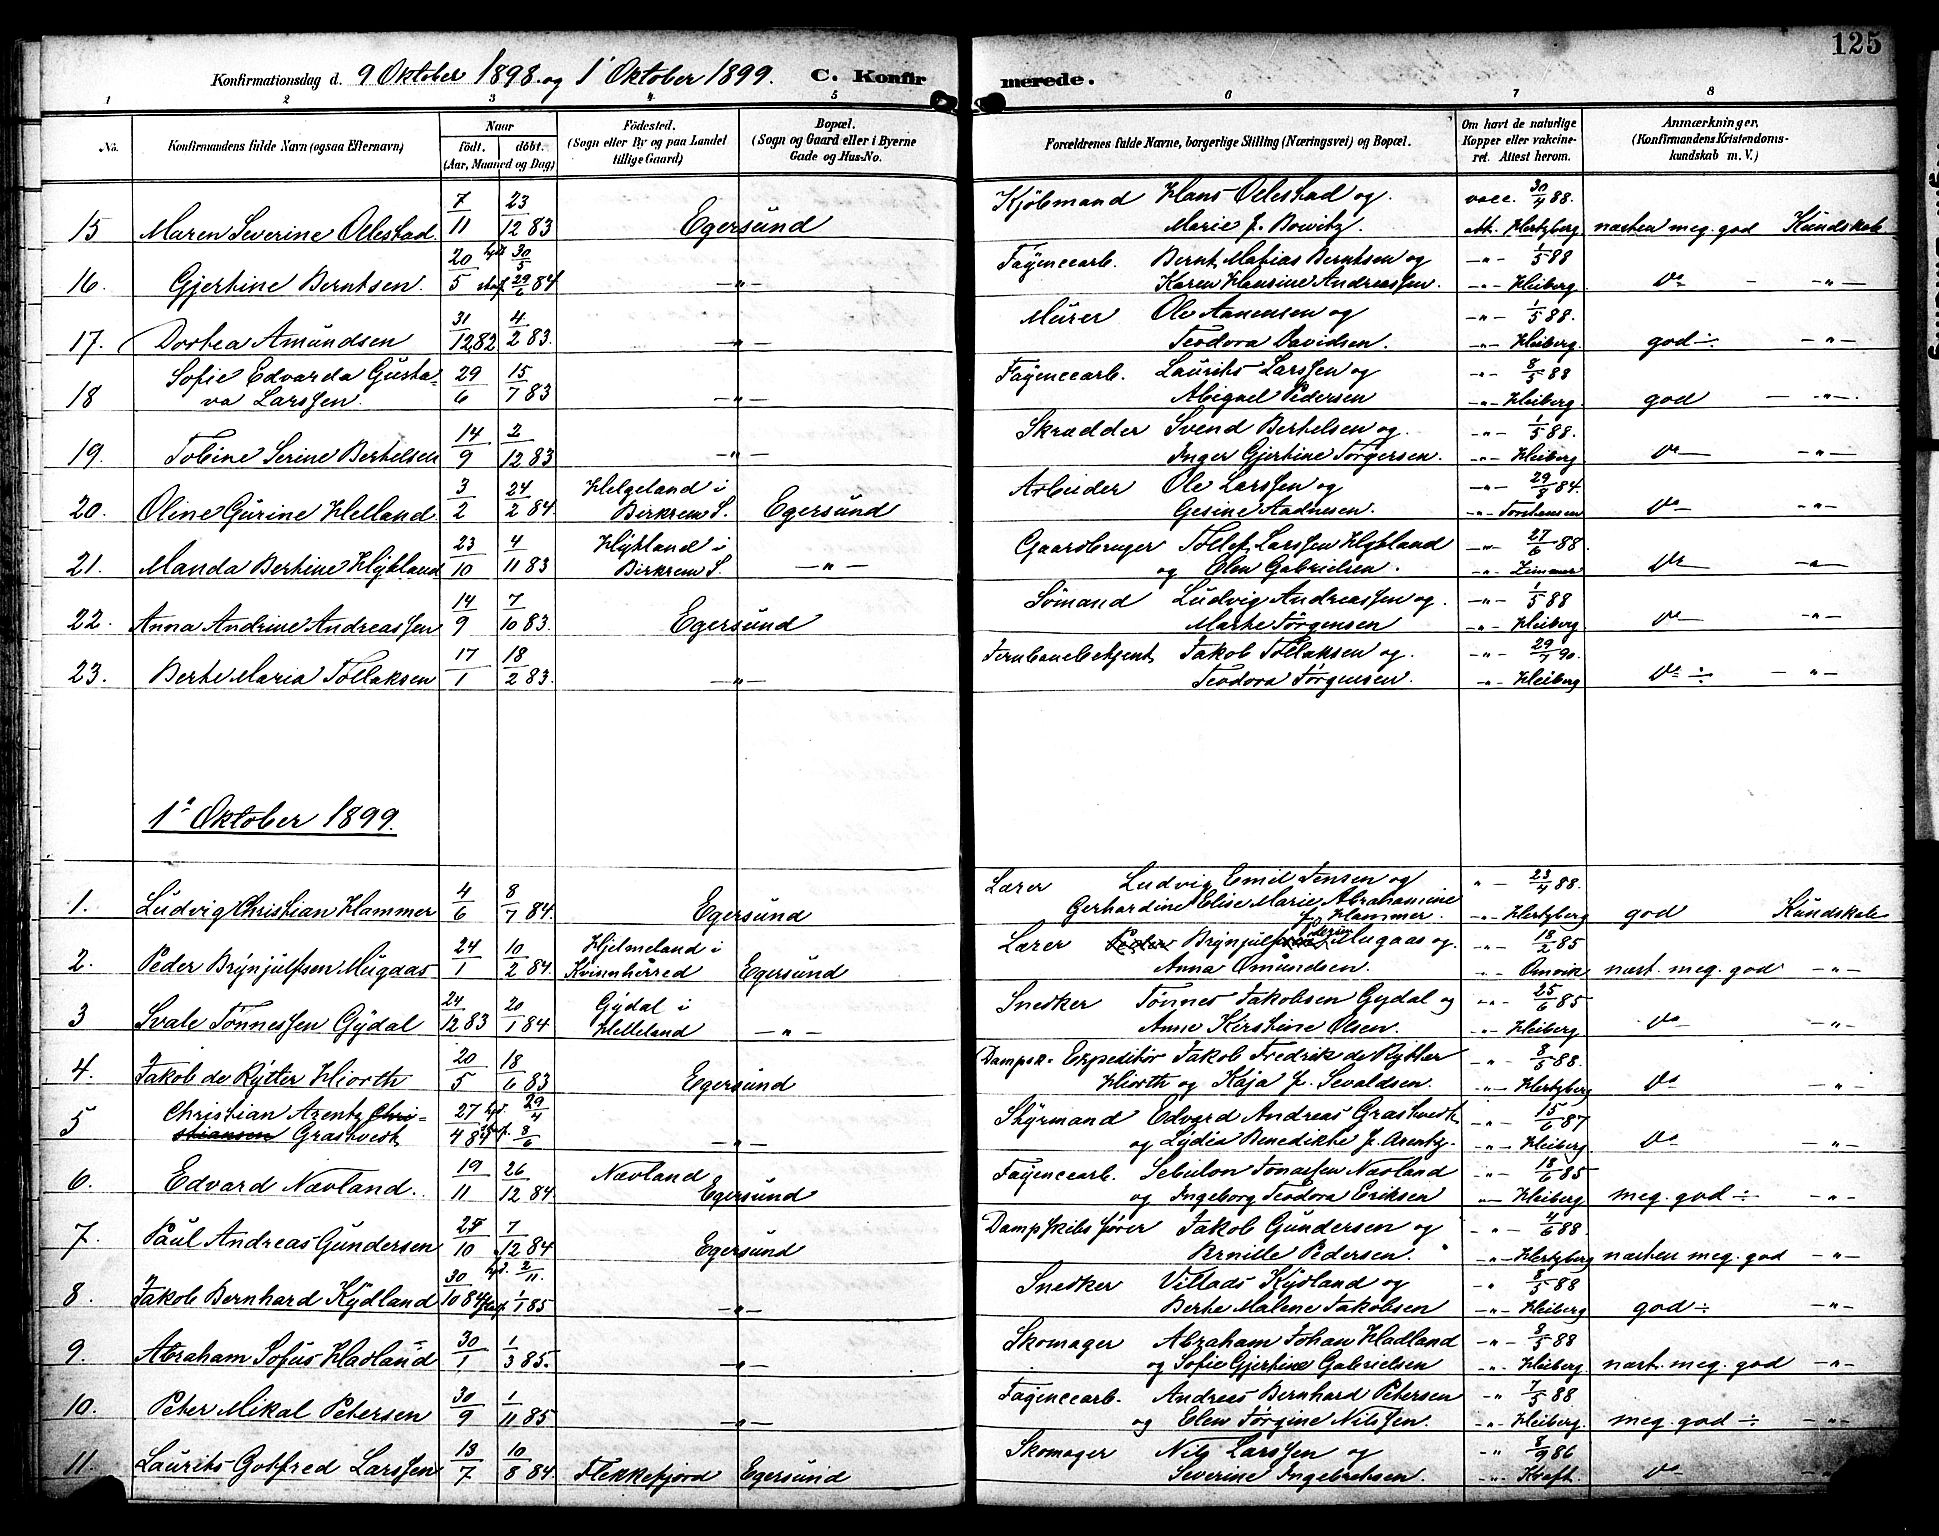 125
Konfirmationsdag d. 9 Oktober 1898. og 1' Oktober 1899. C. Konfirmerede.
1 2 3 4 5 6 7 8
No. Konfirmandens fulde Navn (ogsaa Efternavn) Naar födt. döbt. (Aar, Maaned og Dag) Födested. (Sogn eller By og paa Landet tillige Gaard) Bopæl. (Sogn og Gaard eller i Byerne Gade og Hus-No. Forældrenes fulde Navne, borgerlige Stilling (Næringsvei) og Bopæl. Om havt de naturlige Kopper eller vakcineret. Attest herom. Anmærkninger, (Konfirmandens Kristendomskundskab m. V.)
15 Maren Severine Ollestad. 7/11 23/12 83 Egersund Kjøbmand Hans Ollestad og Marie f. Bowitz. vacc. 30/4 88. att. Hertzberg næsten meg. god Kundskab
16. Gjertine Berntsen. 20/5 hjd. 30/5 stadf. 29/6 84 —„— Fayencearb. Bernt Matias Berntsen og Karen Hansine Andreassen. —„— 1/5 88 —„— Heiberg. do — —„—
17. Dortea Amundsen 31/12 82 4/2 83. —„— Murer Ole Aanensen og Teodora Davidsen. —„— 1/5 88. —„— Heiberg. god ÷ —„—
18 Sofie Edvarda Gustava Larssen. 29/6 15/7 83 —„— Fayencearb. Laurits Larssen og Abigael Pedersen —„— 8/5 88 —„— Heiberg. god — —„—
19. Tobine Serine Bertelsen 14/9 2/12 83 —„— Skrædder Svend Bertelsen og Inger Gjertine Torgersen. —„— 1/5 88. —„— Heiberg do —„—
20. Oline Gurine Helland 3/2 24/2 84 Helgeland i Birkrem S. Egersund Arbeider Ole Larssen og Gesine Aadnesen. —„— 29/8 84. —„— Torstensen do —„—
21. Manda Bertine Hytland 23/10 4/11 83 Hytland i Birkrem S. —„— Gaardbruger Tollef Larssen Hytland og Elen Gabrielsen. —„— 27/6 88. —„— Zimmer do —„—
22. Anna Andrine Andreassen 14/9 7/10 83. Egersund Sømand Ludvig Andreassen og Marte Tørgensen —„— 1/5 88 —„— Heiberg do —„—
23. Berte Maria Tollaksen 17/1 18/2 83. —„— Jernbanebetjent Jakob Tollaksen og Teodora Tørgensen. —„— 29/7 90. —„— Heiberg do ÷ — —„—
1' Oktober 1899.
1. Ludvig Christian Hammer 4/6 8/7 84. Egersund Lærer Ludvig Emil Jensen og Gerhardine Elise Marie Abrahamine f. Hammer. „ — 23/4 88. —„— Hertzberg god Kundskab
2. Peder Brynjulfsen Mugaas 24/1 10/2 84. Hjelmeland i Kvinnherred Egersund Lærer Brynjulf Mugaas og Anna Omundsen. —„— 18/2 85 —„— Omvik næst. meg. god —„—
3 Svale Tønnessen Gydal 24/12 83 20/1 84 Gydal i Helleland —„— Snedker Tønnes Jakobsen Gydal og Anne Kirstine Olsen. —„— 25/6 85 —„— Heiberg. do —„—
4. Jakob de Rytter Hiorth 20/5 18/6 83 Egersund Dampsk. Expeditør Jakob Fredrik de Rytter Hiorth og Kaja f. Sevaldsen. „ — 8/5 88. —„— Hertzberg do —„—
5 Christian Arentz Christiansen Grastvedt 27/4 84 hjd. 29/4 8/6 —„— Styrmand Edvard Andreas Grastvedt og Lydia Benedikte f. Arentz. —„— 15/6 87 —„— Heiberg. do —„—
6. Edvard Nævland. 19/11 26/12 84. Nævland Egersund Fayencearb. Sebulon Jonassen Nævland og Ingeborg Teodora Eriksen —„— 18/6 85 —„— Heiberg. meg. god ÷ —„—
7. Paul Andreas Gundersen 25/10 7/12 84 Egersund Dampskibsfører Jakob Gundersen og Pernille Pedersen. „ — 4/6 88. —„— Hertzberg næsten meg. god —„—
8. Jakob Bernhard Kydland 30/10 84 hjd. 2/11. stadf. 1/1 85 —„— Snedker Villads Kydland og Berte Malene Jakobsen „ 8/5 88 —„— Heiberg god ÷ —„—
9. Abraham Sofus Hadland 30/1 1/3 85. —„— Skomager Abraham Johan Hadland og Sofie Gjertine Gabrielsen „ — 8/5 88 —„— Heiberg. næst. meg. god —„—
10. Peter Mikal Petersen 30/9 1/11 85. —„— Fayencearb. Andreas Bernhard Petersen og Elen Jørgine Nilssen. „ 7/5 88 —„— Heiberg. meg. god ÷ —„—
11. Laurits Gotfred Larssen 13/7 10/8 84. Flekkefjord Egersund Skomager Nils Larssen og Severine Ingebretsen. „ 8/9 86 —„— Kraft. do —„—